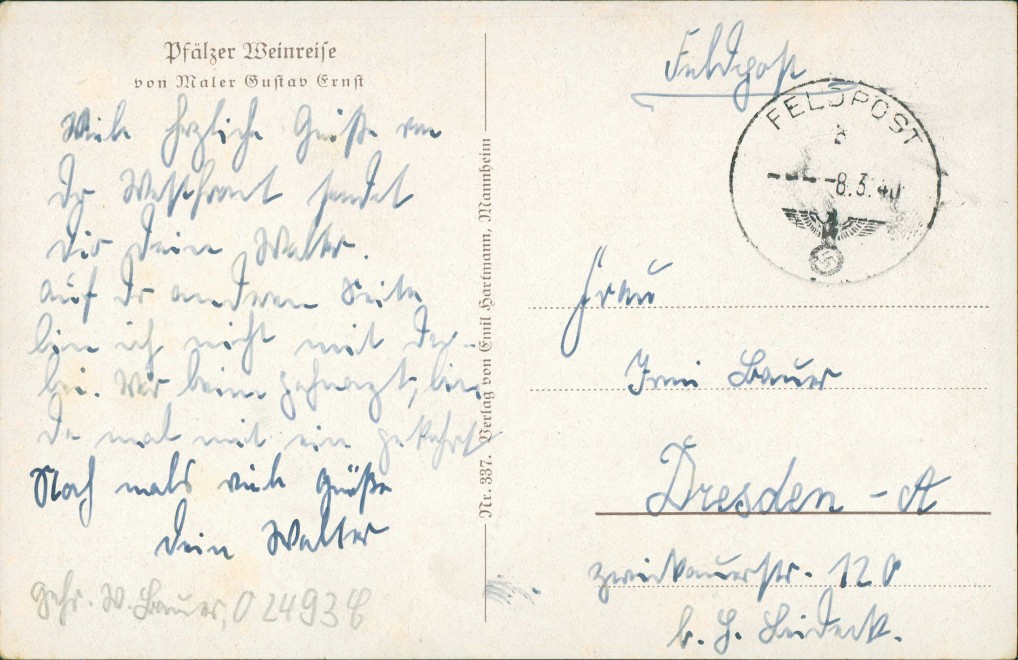 Pfälzer Weinreise
von Maler Gustav Ernst
Viele herzliche Grüße von
der Westfront sendet
Dir Dein Walter.
auf der anderen Seite
bin ich nicht mit da-
bei. War beim Zahnarzt, bin
da mal mit ein gekehrt
Noch mals viele Grüße
Dein Walter
Gefr. W. Bauer, 02493 
Nr. 337. Verlag von Emil Hartmann, Mannheim
Feldpost
FELDPOST
a
-8.3.40
Frau
Bauer
Dresden - A
Zwickauerstr. 120
b. H.